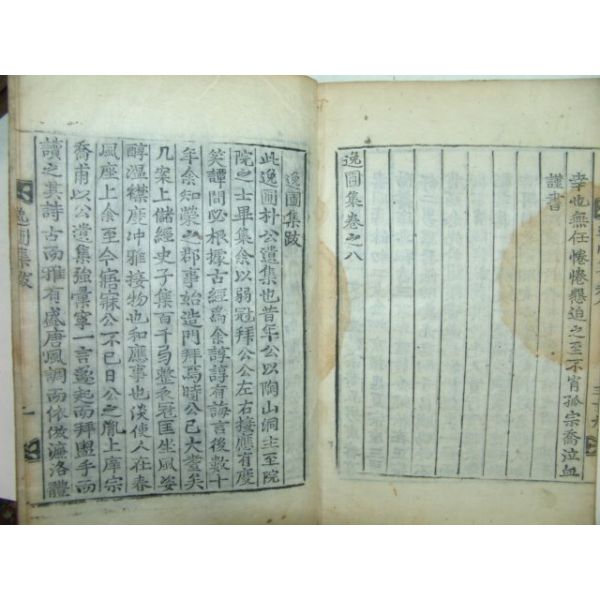 幸也無任惓惓懇迫之至不肖孤宗喬泣血
謹書
逸圃集卷之八
逸圃集跋
此逸圃朴公遺集也昔年公以陶山洞主至院
院之士畢集余以弱冠拜公公左右接應有度
笑譚間必根據古經爲余諄諄有誨言後數十
年余知榮之郡事始造門拜焉時公已大耋矣
几案上儲經史子集百千弓整衣冠匡坐風姿
醇溫襟度冲雅接物也和應事也淡使人在春
風座上余至今寤寐公不已日公之胤上庠宗
喬甫以公遺集強彙寧一言蹙起而拜盥手而
讀之其詩古而雅有盛唐風調而依倣濂洛體
逸圃集跋
一